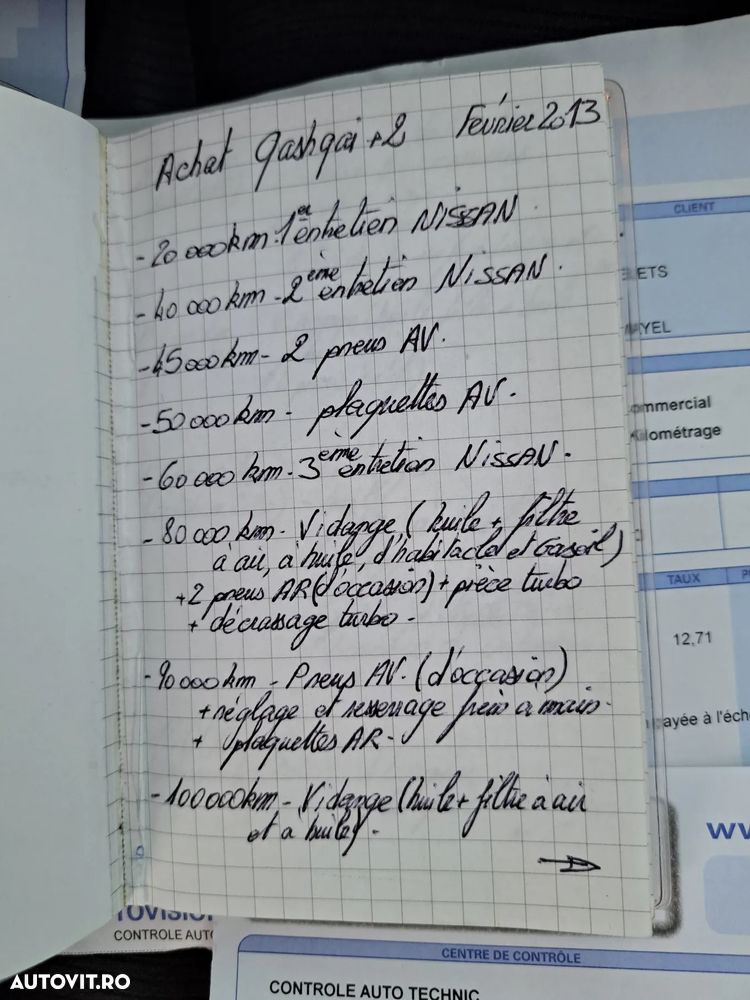 Achat Qashqai +2 Février 2013
- 20 000km. 1er entretien NISSAN.
- 40 000km - 2ème entretien NISSAN.
- 45000km - 2 pneus AV.
- 50 000km - plaquettes AV.
- 60 000km - 3ème entretien NISSAN.
- 80 000km - Vidange (huile + filtre
à air, à huile, d'habitacle et Gasoil)
+ 2 pneus AR (d'occasion) + pièce turbo
+ décrassage turbo -
- 90 000km - Pneus AV. (d'occasion)
+ réglage et resserrage frein à main.
+ plaquettes AR -
- 100 000km - Vidange (huile + filtre à air
et a huile) -
CLIENT
ETS
AYEL
mmercial
ilométrage
TAUX
12,71
payée à l'éch
ww
TOVISION
CONTROLE AUTO
CENTRE DE CONTRÔLE
CONTROLE AUTO TECHNIC
AUTOVIT.RO